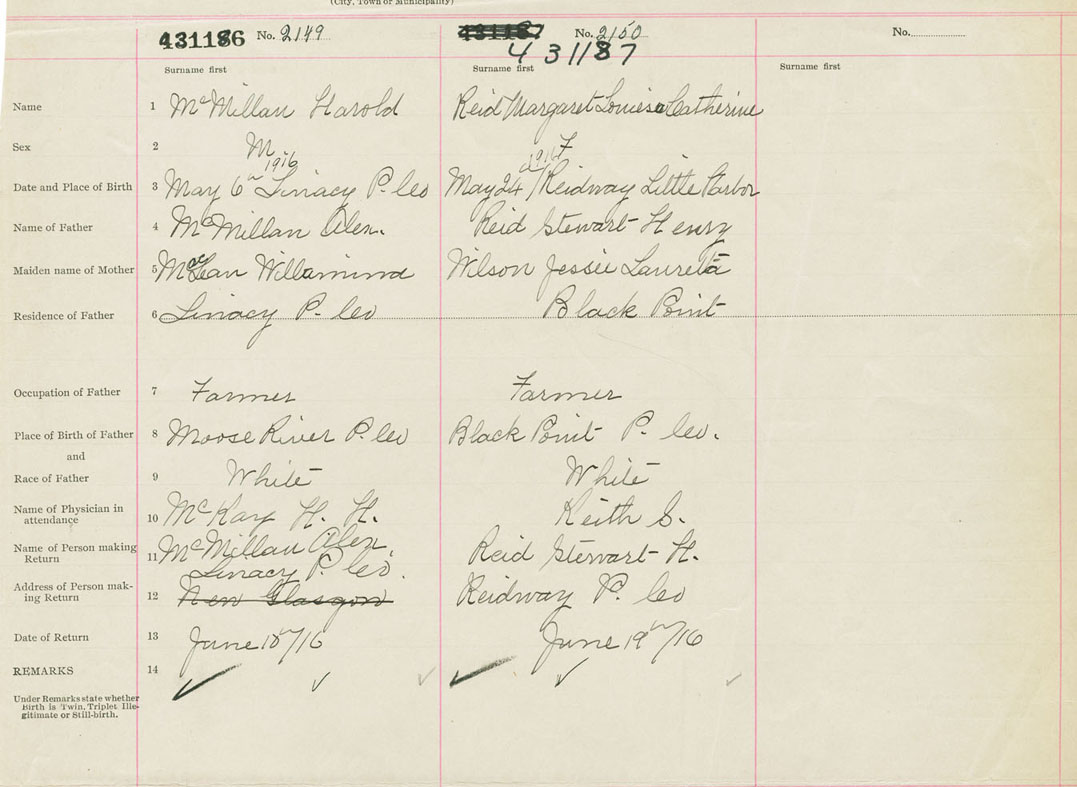 (City, Town or Municipality)
431186 No. 2149 No. 2150 No.
431187
Surname first Surname first Surname first
Name 1 McMillan Harold Reid Margaret Louise Catherine
Sex 2 M F
1916 1916
Date and Place of Birth 3 May 6th Linacy P. Co May 24 / Reidway Little Harbor
Name of Father 4 McMillan Alex. Reid Stewart Henry
Maiden name of Mother 5 MacLean Willamina Wilson Jessie Lauretta
Residence of Father 6 Linacy P. Co Black Point
Occupation of Father 7 Farmer Farmer
Place of Birth of Father 8 Moose River P. Co Black Point P. Co.
and
Race of Father 9 White White
Name of Physician in
attendance 10 McKay H. H. Keith S.
Name of Person making
Return 11 McMillan Alex. Reid Stewart H.
Linacy P. Co.
Address of Person mak-
ing Return 12 New Glasgow Reidway P. Co
Date of Return 13 June 18th/16 June 19th/16
REMARKS 14
Under Remarks state whether
Birth is Twin, Triplet Ille-
gitimate or Still-birth.